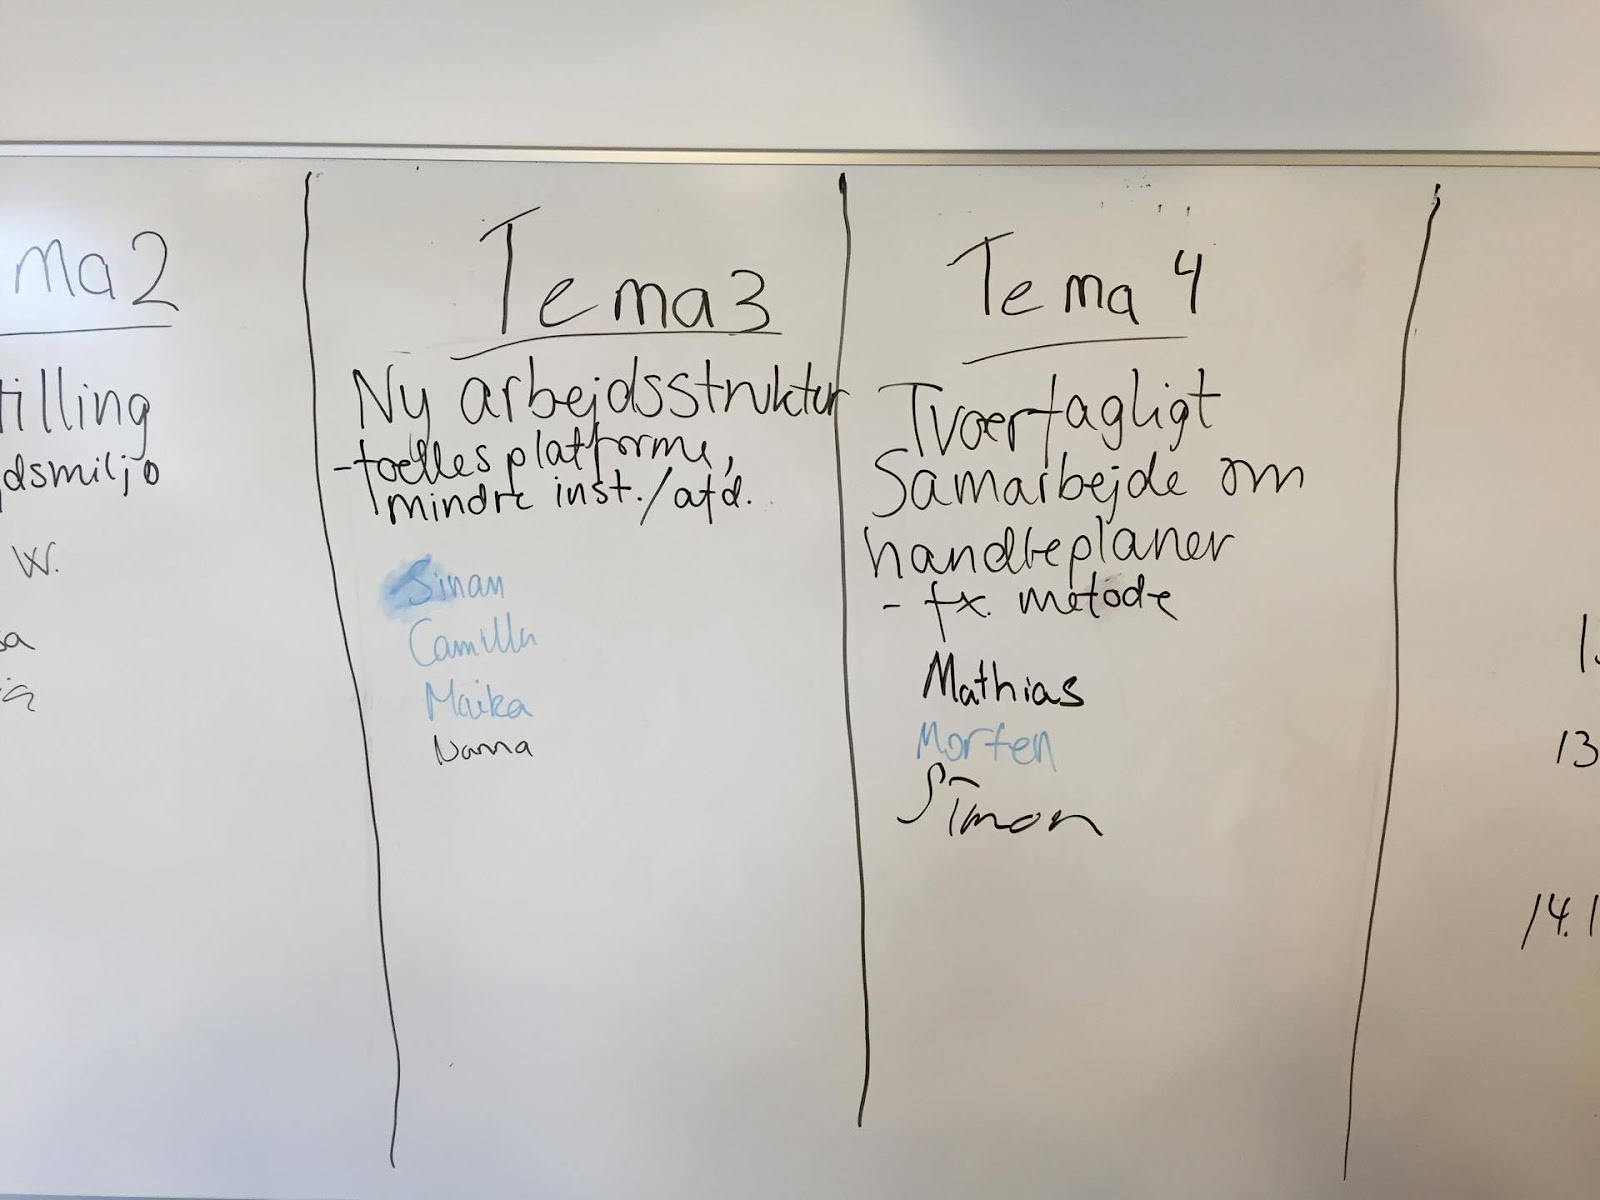 ma 2
tilling
dsmiljø
W.
Tema 3
Ny arbejdsstruktur
- fælles platforme,
mindre inst./afd.
Sinan
Camilla
Maika
Nanna
Tema 4
Tværfagligt
Samarbejde om
handleplaner
- fx. metode
Mathias
Morten
Simon
13
14.1